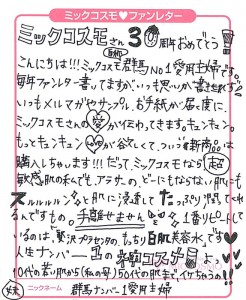 ミックコスモ♥ファンレター
ミックコスモさん30周年おめでとう!
こんにちは!!!ミックコスモ群馬No1愛用主婦です。
毎年ファンレター書いてますが、いつも思いが書ききれず
いつもメルマガやサンプル、お手紙が届く度に、
ミックコスモさんの愛が伝わってきます。キュンキュン。
もっとキュンキュンが欲しくて、ついつい新商品は
購入しちゃいます!!!だって、ミックコスモなら
敏感肌の私でも、アラサーの、どーにもならない肌にも
スルルルルンと肌に浸透してたっぷり潤ってくれ
るんですもの。手離せません。1番リピートして
いるのは、贅沢プラセンタの、もっちり白肌美容水です
人生ナンバー1の
10代の若い肌から(私の母)50代の肌まで、イケちゃうの!!
ニックネーム
群馬ナンバー1愛用主婦